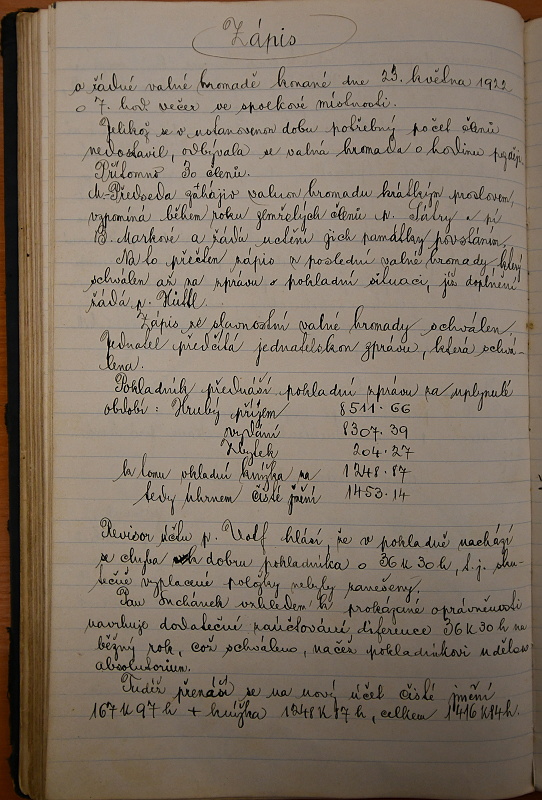 Zápis
o řádné valné hromadě konané dne 23. května 1922
o 7. hod večer ve spolkové místnosti.
Jelikož se v ustanovenou dobu potřebný počet členů
nedostavil, odbývala se valná hromada o hodinu později.
Přítomno 30 členů.
M-Předseda zahájiv valnou hromadu krátkým proslovem,
vzpomíná během roku zemřelých členů p. Sátry a pí
B. Markové a žádá uctění jich památky povstáním.
Na to přečten zápis z poslední valné hromady který
schválen až na zprávu o pokladní situaci, jíž doplnění
žádá p. Hüttl.
Zápis se slavnostní valné hromady schválen.
Jednatel předčítá jednatelskou zprávu, která schvá-
lena.
Pokladník přednáší pokladní zprávu za uplynulé
období: Hrubý příjem 8511.66
vydání 8307.39
Zbytek 204.27
k tomu vkladní knížka na 1248.87
tedy úhrnem čisté jmění 1453.14
Revisor účtu p. Wolf hlásí, že v pokladně nachází
se chyba dobru pokladníka o 36 K 30 h, t.j. sku-
tečně vyplacené položky nebyly zanešeny.
Pan Suchánek vzhledem k prokázané oprávněnosti
navrhuje dodatečné zaúčtování diference 36 K 30 h na
běžný rok, což schváleno, načež pokladníkovi uděleno
absolutorium.
Tudíž přenáší se na nový účet čisté jmění
167 K 97 h + knížka 1248 K 87 h, celkem 1416 K 84 h.